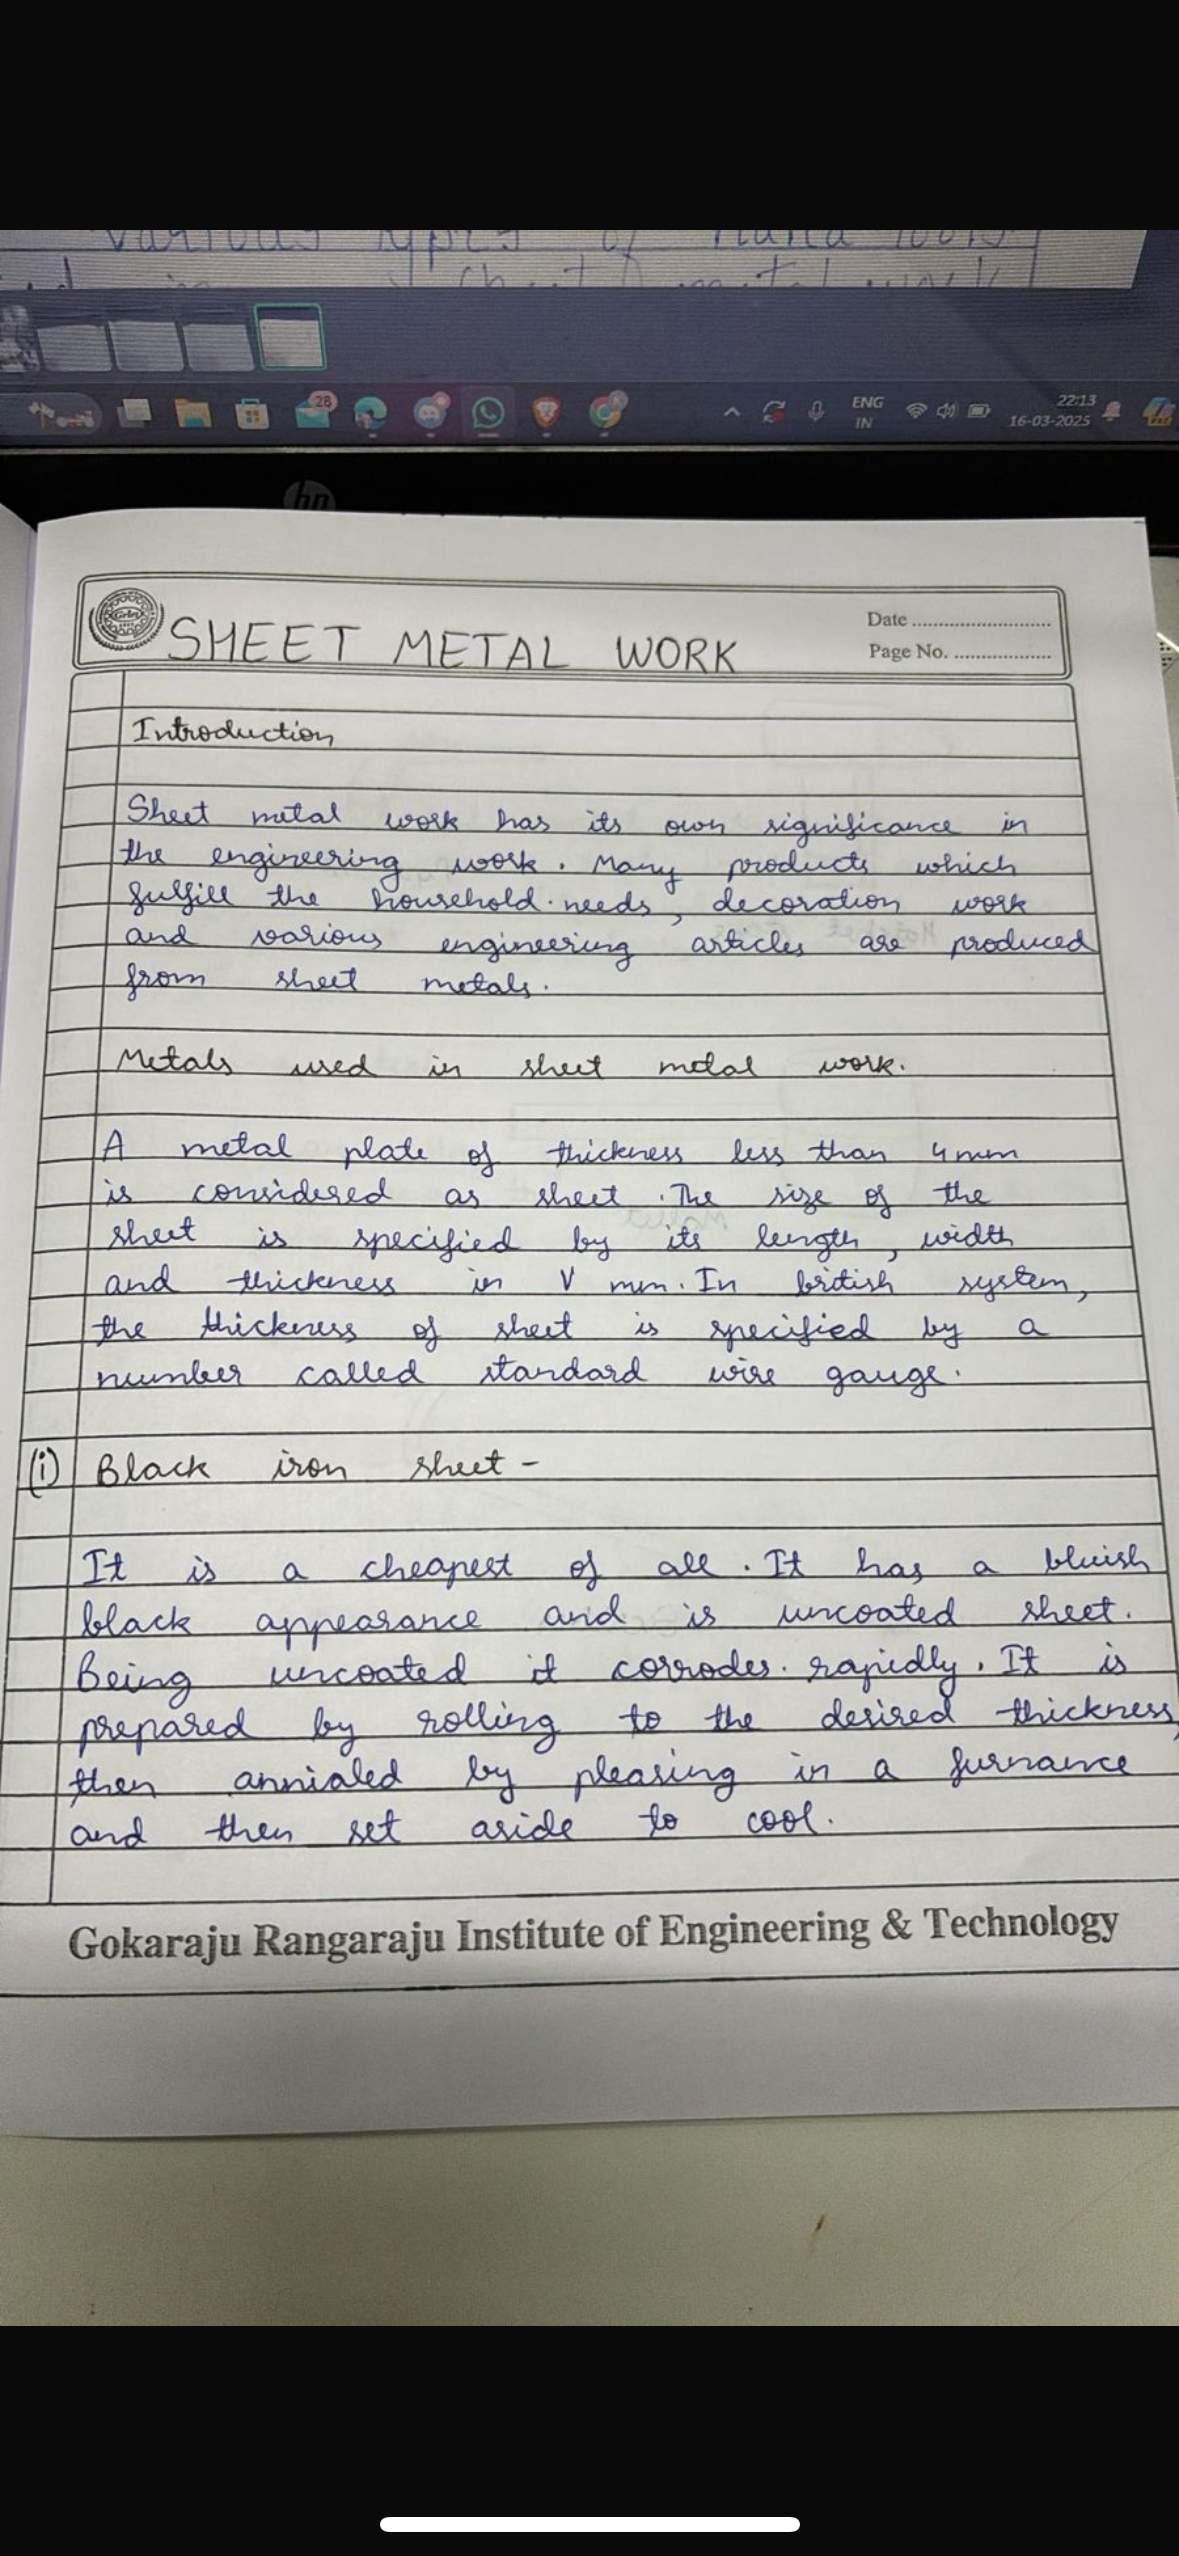 various types of hand tools
sheet metal work
28
ENG
IN
22:13
16-03-2025
hp
SHEET METAL WORK
Date
Page No.
Introduction
Sheet metal work has its own significance in
the engineering work. Many products which
fulfill the household needs, decoration work
and various engineering articles are produced
from sheet metals.
Metals used in sheet metal work.
A metal plate of thickness less than 4mm
is considered as sheet. The size of the
sheet is specified by its length, width
and thickness in V mm. In british system,
the thickness of sheet is specified by a
number called standard wire gauge.
(i) Black iron sheet -
It is a cheapest of all. It has a bluish
black appearance and is uncoated sheet.
Being uncoated it corrodes rapidly. It is
prepared by rolling to the desired thickness,
then annialed by pleasing in a furnance
and then set aside to cool.
Gokaraju Rangaraju Institute of Engineering & Technology